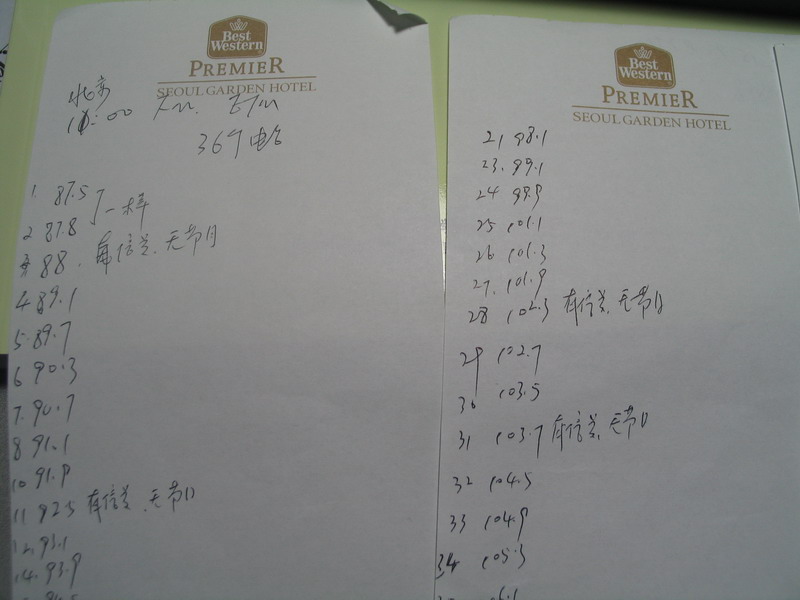 Best
Western
PREMIER
SEOUL GARDEN HOTEL
北京
10:00
36个电台
1. 87.5
2 87.8
一样
3 88. 有信号、无节目
4 89.1
5. 89.7
6 90.3
7. 90.7
8 91.1
10 91.9
11 92.5 有信号、无节目
12. 93.1
14. 93.9
Best
Western
PREMIER
SEOUL GARDEN HOTEL
21 98.1
23. 99.1
24 99.9
25 101.1
26 101.3
27. 101.9
28 102.3 有信号、无节目
29 102.7
30 103.5
31 103.7 有信号、无节目
32 104.5
33 104.9
34 105.3